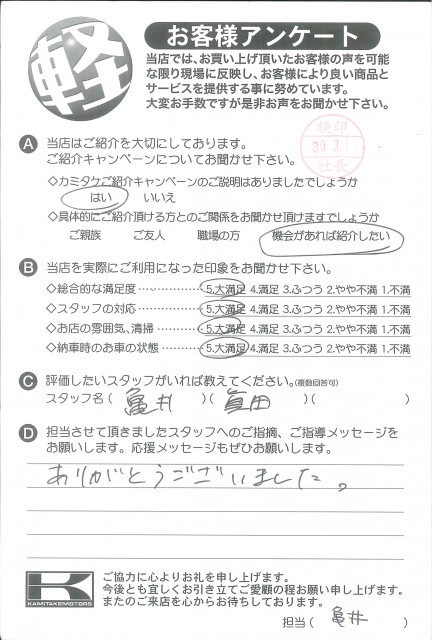 軽
お客様アンケート
当店では、お買い上げ頂いたお客様の声を可能
な限り現場に反映し、お客様により良い商品と
サービスを提供する事に努めています。
大変お手数ですが是非お声をお聞かせ下さい。
検印
30.3.1
社長
A 当店はご紹介を大切にしております。
ご紹介キャンペーンについてお聞かせ下さい。
◇カミタケご紹介キャンペーンのご説明はありましたでしょうか
はい いいえ
◇具体的にご紹介頂ける方とのご関係をお聞かせ頂けますでしょうか
ご親族 ご友人 職場の方 機会があれば紹介したい
B 当店を実際にご利用になった印象をお聞かせ下さい。
◇総合的な満足度……………5.大満足 4.満足 3.ふつう 2.やや不満 1.不満
◇スタッフの対応……………5.大満足 4.満足 3.ふつう 2.やや不満 1.不満
◇お店の雰囲気、清掃…………5.大満足 4.満足 3.ふつう 2.やや不満 1.不満
◇納車時のお車の状態…………5.大満足 4.満足 3.ふつう 2.やや不満 1.不満
C 評価したいスタッフがいれば教えてください。(複数回答可)
スタッフ名( 亀井 )( 眞田 )( )
D 担当させて頂きましたスタッフへのご指摘、ご指導メッセージを
お願いします。応援メッセージもぜひお願いします。
ありがとうございました。
K
KAMITAKEMOTORS
ご協力に心よりお礼を申し上げます。
今後とも宜しくお引き立てご愛顧の程お願い申し上げます。
またのご来店を心からお待ちしております。
担当( 亀井 )